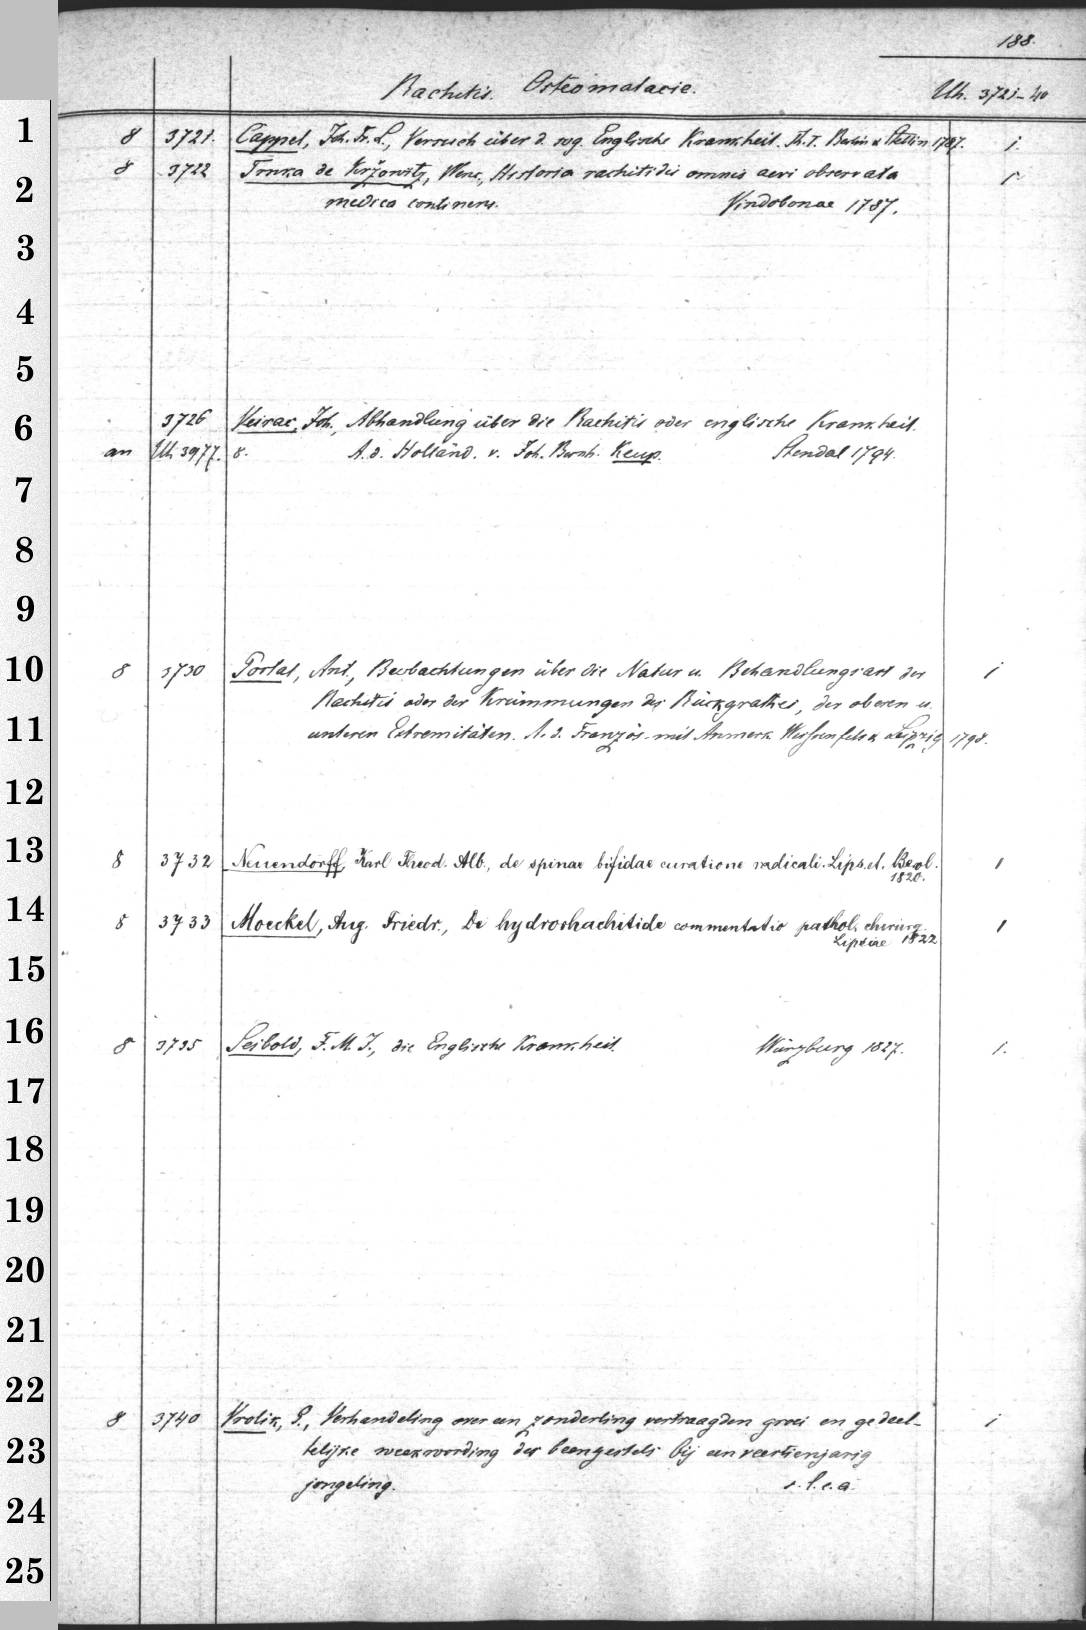 188.
Rachitis. Osteomalacie. Uh. 3721-40
1
8 3721. Cappel, Joh. Fr. L., Versuch über d. sog. Englische Krankheit. Th. I. Berlin u Stettin 1787. 1.
8 3722 Trnka de Kržowitz, Wenc., Historia rachitidis omnis aevi observata 1
2
medica continens. Vindobonae 1787.
3
4
5
6
3726 Veirac, Joh., Abhandlung über die Rachitis oder englische Krankheit.
an Uh. 3977. 8. A. d. Holländ. v. Joh. Bernh. Keup. Stendal 1794.
7
8
9
10
8 3730 Portal, Ant., Beobachtungen über die Natur u. Behandlungsart der 1
Rachitis oder der Krümmungen des Rückgrathes, der oberen u.
11
unteren Extremitäten. A. d. Französ. mit Anmerk. Weissenfels u. Leipzig 1798.
12
13
8 3732 Neuendorff, Karl Theod. Alb., de spinae bifidae curatione radicali. Lips. et. Berol. 1
1820.
14
8 3733 Moeckel, Aug. Friedr., De hydrorhachitide commentatio pathol. chirurg. 1
Lipsiae 1822
15
16
8 3735 Seibold, F. M. J., die Englische Krankheit. Würzburg 1827. 1.
17
18
19
20
21
22
8 3740 Vrolik, G., Verhandeling over een zonderling vertraagden groei en gedeel- 1
23
telijke weekwording des beengestels bij een veertienjarig
jongeling. s. l. e. a.
24
25